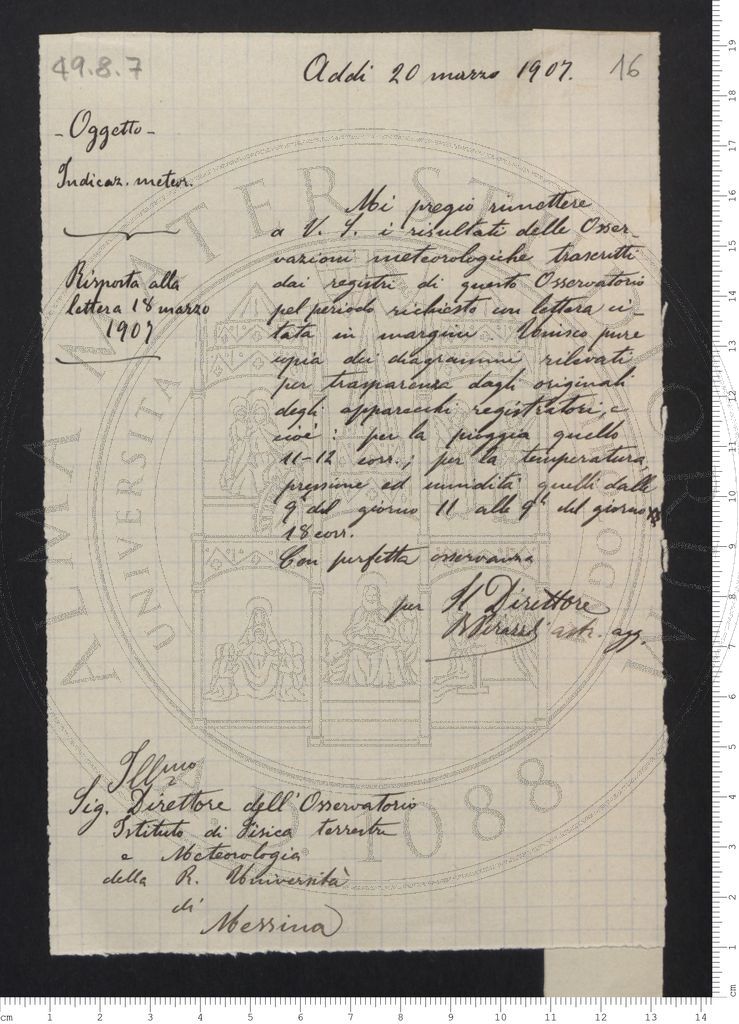 49.8.7
Addì 20 marzo 1907.
16
- Oggetto -
Indicaz. meteor.
Risposta alla
lettera 18 marzo
1907
Mi pregio rimettere
a V. S. i risultati delle Osser-
vazioni meteorologiche trascritti
dai registri di questo Osservatorio
pel periodo richiesto con lettera ci-
tata in margine. Unisco pure
copia dei diagrammi rilevati
per trasparenza dagli originali
degli apparecchi registratori, e
cioè: per la pioggia quello
11-12 corr.; per la temperatura,
pressione ed umidità quelli dalle
9h del giorno 11 alle 9h del giorno
18 corr.
Con perfetta osservanza
per Il Direttore
astr. agg.
Illmo
Sig. Direttore dell'Osservatorio
Istituto di Fisica terrestre
e Meteorologia
della R. Università
di
Messina
ALMA MATER STUDIORUM
UNIVERSITA
A.D. 1088